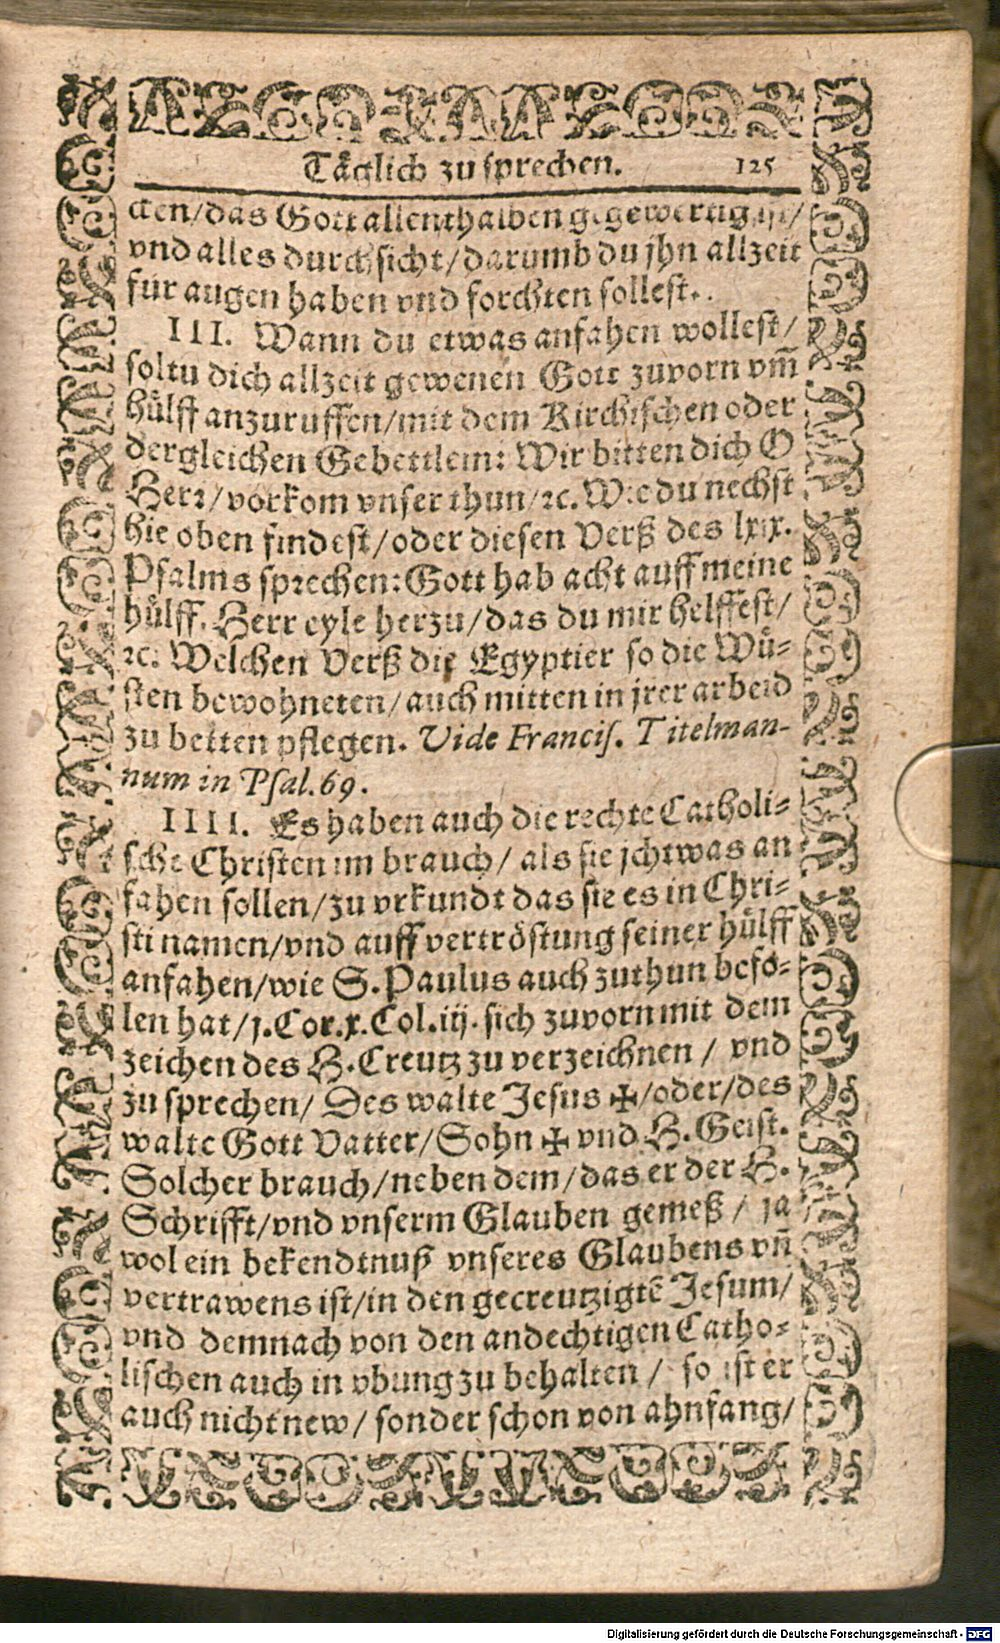 Täglich zu sprechen. 125
cten/das Gott allenthalben gegewertig ist/
vnd alles durchsicht/darumb du jhn allzeit
für augen haben vnd forchten sollest.
III. Wann du etwas anfahen wollest/
soltu dich allzeit gewenen Gott zuvorn vm̄
hülff anzuruffen/mit dem Kirchischen oder
dergleichen Gebettlein: Wir bitten dich O
Herr/vorkom vnser thun/ꝛc. Wie du nechst
hie oben findest/oder diesen Verß des lxix.
Psalms sprechen: Gott hab acht auff meine
hülff. Herr eyle herzu/das du mir helffest/
ꝛc. Welchen Verß die Egyptier so die Wü-
sten bewohneten/auch mitten in jrer arbeid
zu betten pflegen. Vide Francis. Titelman-
num in Psal. 69.
IIII. Es haben auch die rechte Catholi-
sche Christen im brauch/ als sie jchtwas an
fahen sollen/zu vrkundt das sie es in Chri-
sti namen/vnd auff vertröstung seiner hülff
anfahen/wie S. Paulus auch zuthun befo-
len hat/j. Cor. x. Col. iij. sich zuvorn mit dem
zeichen des H. Creutz zu verzeichnen / vnd
zu sprechen/ Des walte Jesus ✠/oder/des
walte Gott Vatter/Sohn ✠ vnd H. Geist.
Solcher brauch/neben dem/das er der H.
Schrifft/vnd vnserm Glauben gemeß / ja
wol ein bekendtnuß vnseres Glaubens vn̄
vertrawens ist/in den gecreutzigtē Jesum/
vnd demnach von den andechtigen Catho-
lischen auch in vbung zu behalten / so ist er
auch nicht new/ sonder schon von ahnfang/
Digitalisierung gefördert durch die Deutsche Forschungsgemeinschaft - DFG